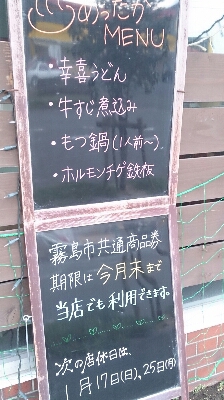 あったか
MENU
・幸喜うどん
・牛すじ煮込み
・もつ鍋(1人前〜)
・ホルモンチゲ鉄板
霧島市共通商品券
期限は今月末まで
当店でも利用できます。
次の店休日は、
1月17日(日)、25日(月)